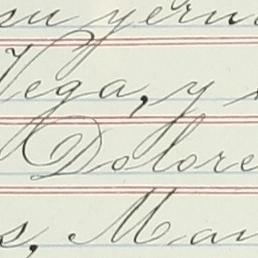 su yern
Vega, y
Dolore
s, Man